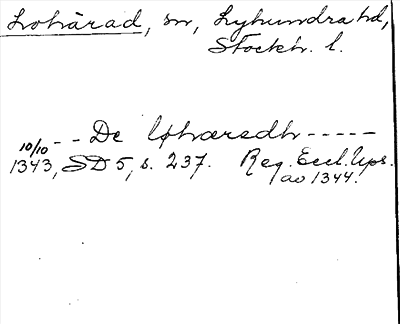 Lohärad, sn, Lyhundra hd,
Stockh. l.
10/10 - - De Lohæredh - - - - -
1343, SD 5, s. 237. Reg. Eccl. Ups.
av 1344.